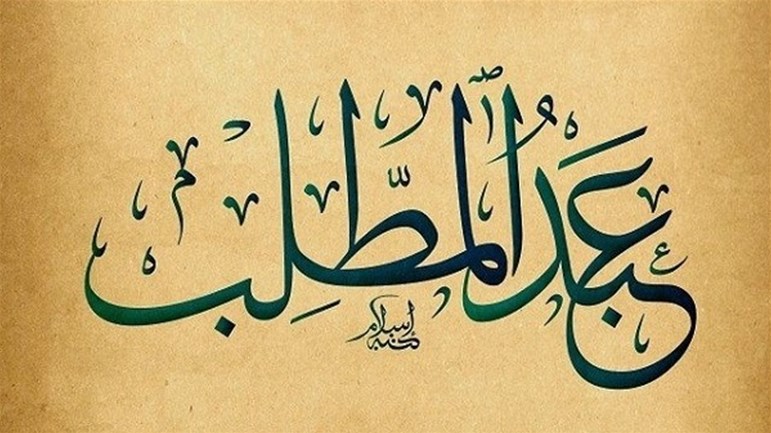 عَبْدُ ٱلْمُطَّلِب
كتبه إسلام